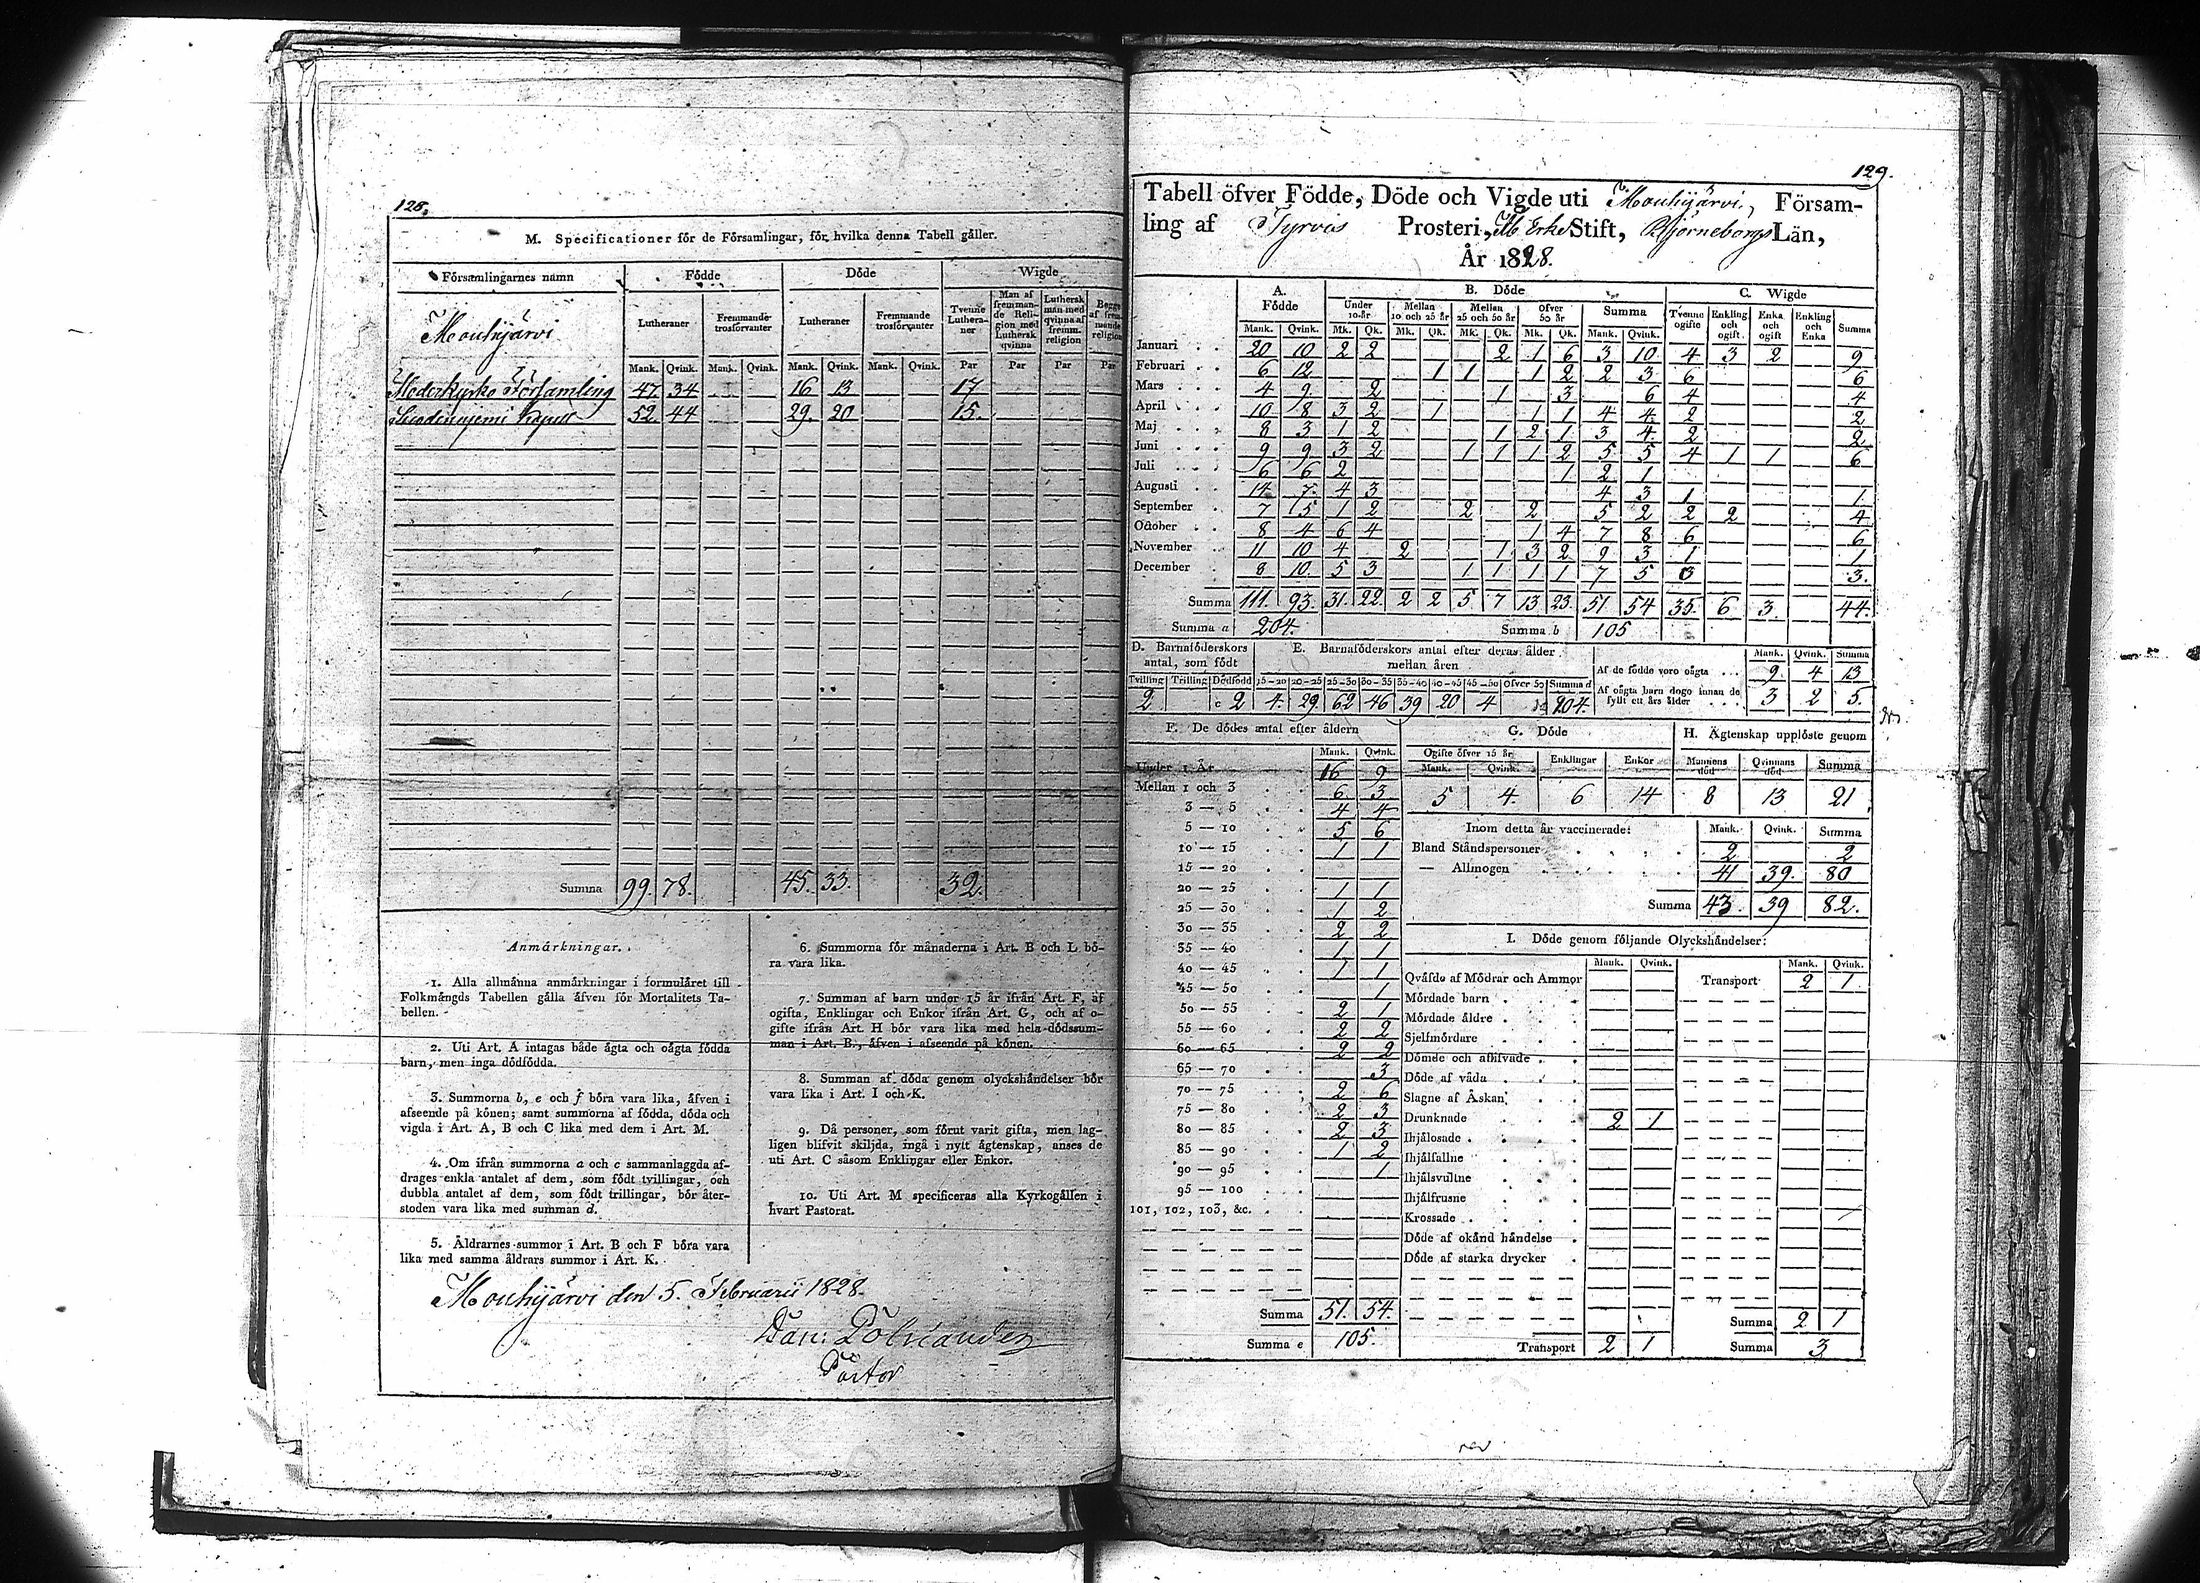 128.
M. Specificationer för de Församlingar, för hvilka denna Tabell gäller.
Församlingarnes namn Födde Döde Wigde
Lutheraner Fremmande trosförvanter Lutheraner Fremmande trosförvanter Tvenne Lutheraner Man af fremmande Religion med Luthersk qvinna Luthersk man med qvinna af fremm. religion Begge af fremmande religion
Mouhijärvi
Mank. Qvink. Mank. Qvink. Mank. Qvink. Mank. Qvink. Par Par Par Par
Moderkyrko Församling 47 34 16 13 17
Suodenniemi Capell 52 44 29. 20 15.
Summa 99. 78. 45. 33. 32.
Anmärkningar.
1. Alla allmänna anmärkningar i formuläret till
Folkmängds Tabellen gälla äfven för Mortalitets Ta-
bellen.
2. Uti Art. A intagas både ägta och oägta födda
barn, men inga dödfödda.
3. Summorna b, e och f böra vara lika, äfven i
afseende på könen; samt summorna af födda, döda och
vigda i Art. A, B och C lika med dem i Art. M.
4. Om ifrån summorna a och c sammanlaggda af-
drages enkla antalet af dem, som födt tvillingar, och
dubbla antalet af dem, som födt trillingar, bör åter-
stoden vara lika med summan d.
5. Åldrarnes summor i Art. B och F böra vara
lika med samma åldrars summor i Art. K.
6. Summorna för månaderna i Art. B och L bö-
ra vara lika.
7. Summan af barn under 15 år ifrån Art. F, af
ogifta, Enklingar och Enkor ifrån Art. G, och af o-
gifte ifrån Art. H bör vara lika med hela dödssum-
man i Art. B., äfven i afseende på könen.
8. Summan af döda genom olyckshändelser bör
vara lika i Art. I och K.
9. Då personer, som förut varit gifta, men lag-
ligen blifvit skiljda, ingå i nytt ägtenskap, anses de
uti Art. C såsom Enklingar eller Enkor.
10. Uti Art. M specificeras alla Kyrkogällen i
hvart Pastorat.
Mouhijärvi den 5. Februarii 1828.
Dan: Polviander
Pastor
129.
Tabell öfver Födde, Döde och Vigde uti Mouhijärvi, Försam-
ling af Tyrvis Prosteri, Erke Stift, Björneborgs Län,
År 1828.
A. Födde B. Döde C. Wigde
Under 10 år Mellan 10 och 25 år Mellan 25 och 50 år Öfver 50 år Summa Tvenne ogifte Enkling och ogift Enka och ogift Enkling och Enka Summa
Mank. Qvink. Mk. Qk. Mk. Qk. Mk. Qk. Mk. Qk. Mank. Qvink.
Januari 20 10 2 2 2 1 6 3 10 4 3 2 9
Februari 6 12 1 1 1 2 2 3 6 6
Mars 4 9 2 1 3 6 4 4
April 10 8 3 2 1 1 1 4 4 2 2
Maj 8 3 1 2 1 2 1 3 4 2 2
Juni 9 9 3 2 1 1 1 2 5 5 4 1 1 6
Juli 6 6 2 1 2 1
Augusti 14 7 4 3 4 3 1 1
September 7 5 1 2 2 2 5 2 2 2 4
October 8 4 6 4 1 4 7 8 6 6
November 11 10 4 2 1 3 2 9 3 1 1
December 8 10 5 3 1 1 1 1 7 5 3 3.
Summa 111. 93. 31. 22. 2 2 5 7 13 23. 51. 54 35. 6. 3. 44.
Summa a 204. Summa b 105
D. Barnaföderskors antal, som födt
Tvilling Trilling Dödfödd
2 c 2
E. Barnaföderskors antal efter deras ålder mellan åren
15-20 20-25 25-30 30-35 35-40 40-45 45-50 öfver 50 Summa d
4. 29 62 46 39 20 4 204.
Mank. Qvink. Summa
Af de födde voro oägta 9 4 13
Af oägta barn dogo innan de fyllt ett års ålder 3 2 5.
F. De dödes antal efter åldern
Mank. Qvink.
Under 1 År 16 9
Mellan 1 och 3 6 3
3 — 5 4 4
5 — 10 5 6
10 — 15 1 1
15 — 20
20 — 25 1 1
25 — 30 1 2
30 — 35 2 2
35 — 40 1 1
40 — 45 1 1
45 — 50 1
50 — 55 2 1
55 — 60 2 2
60 — 65 2 2
65 — 70 3
70 — 75 2 6
75 — 80 2 3
80 — 85 2 3
85 — 90 1 2
90 — 95 1
95 — 100
101, 102, 103, &c.
Summa 51. 54.
Summa e 105.
G. Döde
Ogifte öfver 15 år Enklingar Enkor
Mank. Qvink.
5 4 6 14
H. Ägtenskap upplöste genom
Mannens död Qvinnans död Summa
8 13 21
Inom detta år vaccinerade: Mank. Qvink. Summa
Bland Ståndspersoner 2 2
— Allmogen 41 39. 80
Summa 43 39 82.
I. Döde genom följande Olyckshändelser:
Mank. Qvink. Mank. Qvink.
Qväfde af Mödrar och Ammor Transport 2 1
Mördade barn
Mördade äldre
Sjelfmördare
Dömde och aflifvade
Döde af våda
Slagne af Åskan
Drunknade 2 1
Ihjälosade
Ihjälfallne
Ihjälsvultne
Ihjälfrusne
Krossade
Döde af okänd händelse
Döde af starka drycker
Summa 2 1
Transport 2 1 Summa 3